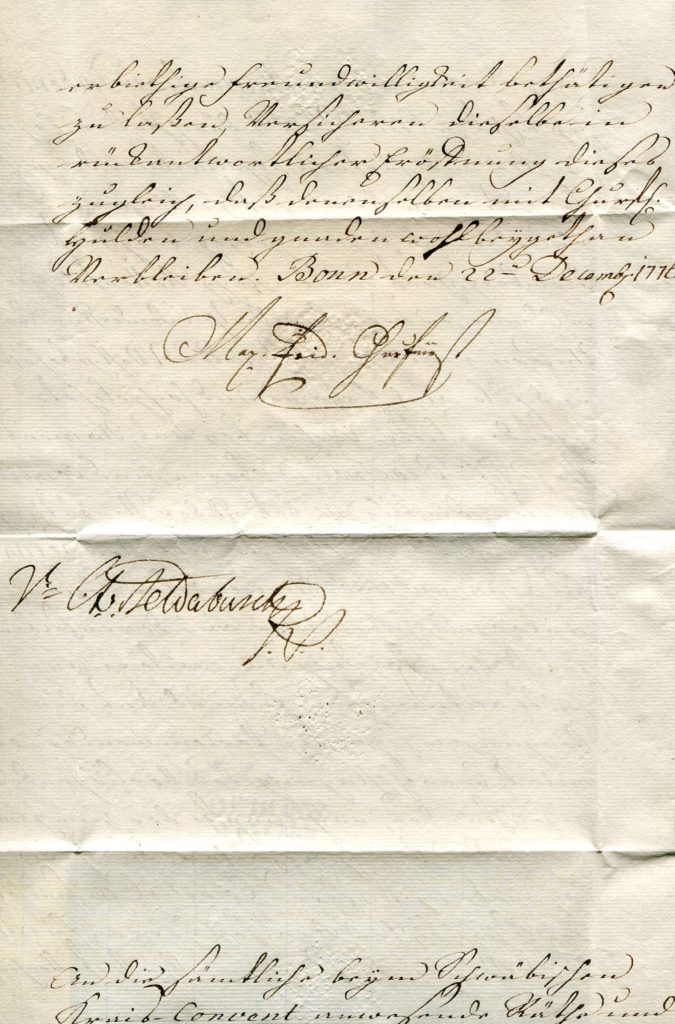 erbiethige Freundwilligkeit bethätigen
zu laßen, Versicheren dieselbe in
rückantwortlicher Eröffnung dieses
zugleich, daß denenselben mit Churfl.
Hulden und gnaden wohl beygethan
Verbleiben. Bonn den 22ten Decembr. 177
Max. Frid. Churfürst
Vt
An die sämtliche beym Schwäbischen
Krais-Convent anwesende Räthe und